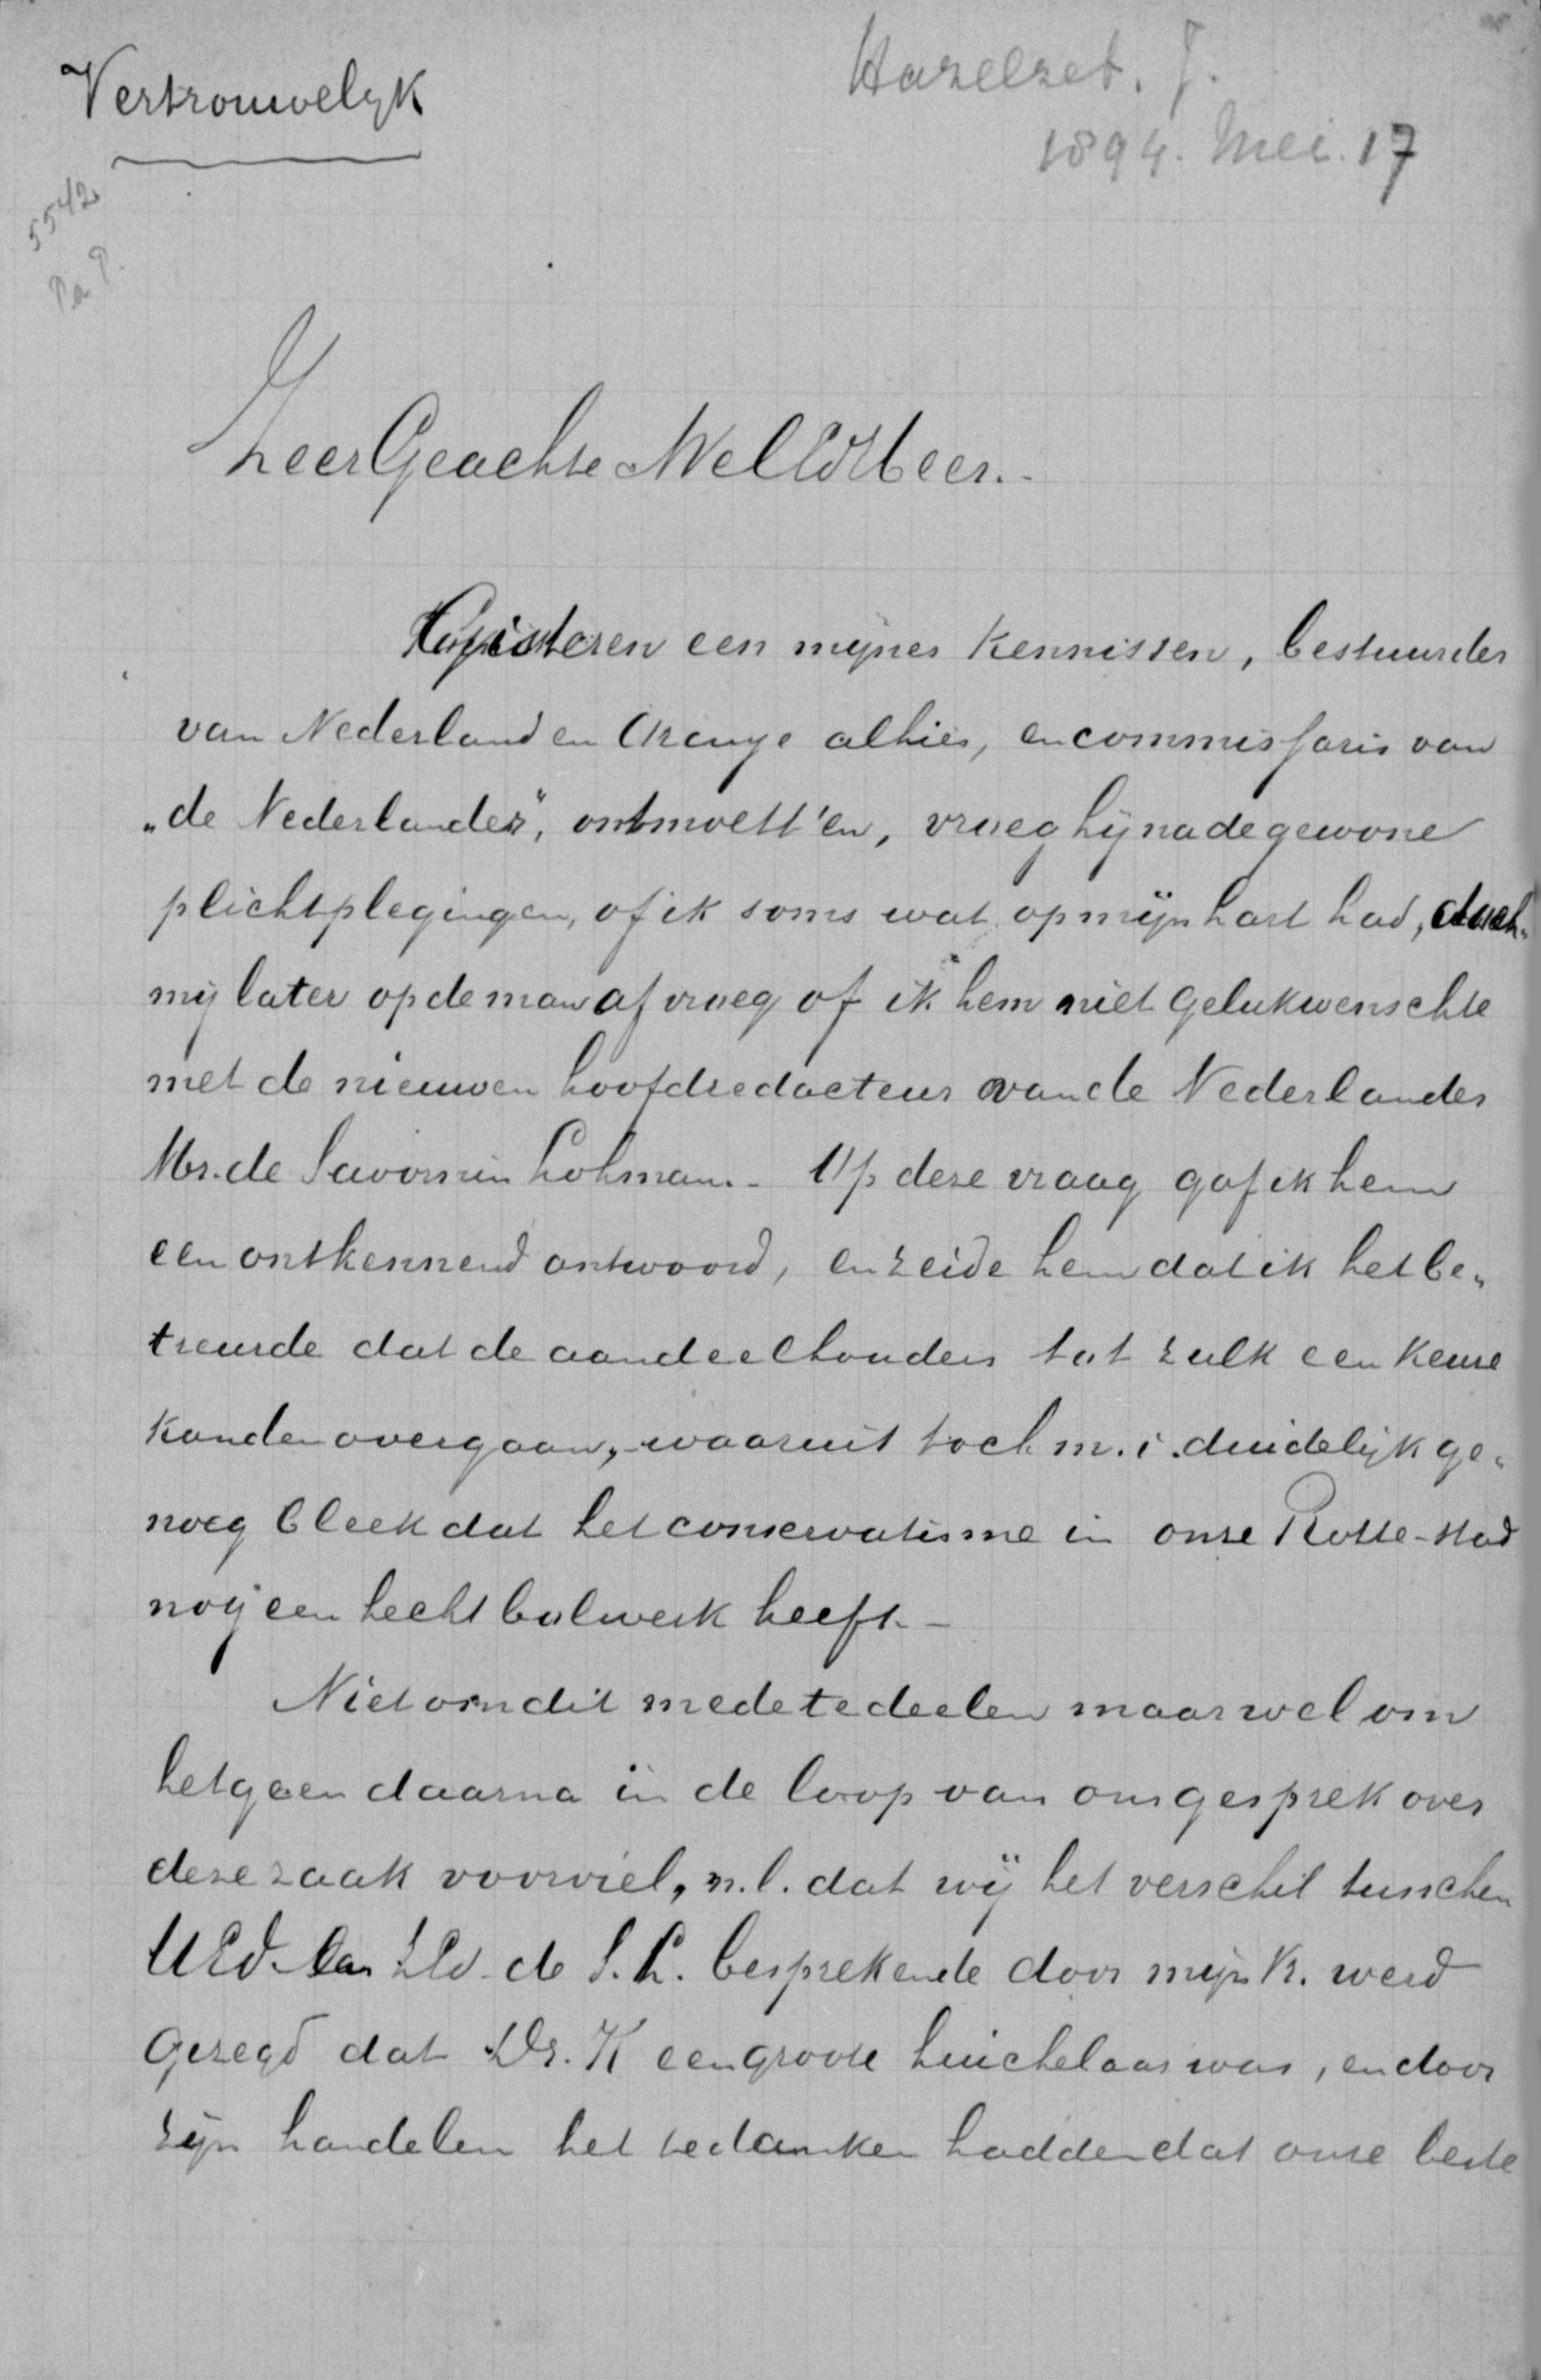 Vertrouwelyk
Hazelzet. J.
1894. Mei. 17
5542
Pa P.
Zeer Geachte WelEdHeer.-
Gisteren een mijner kennissen, bestuurder
van Nederland en Oranje alhier, en commissaris van
„de Nederlander", ontmoett'en, vroeg hij na de gewone
plichtplegingen, of ik soms wat op mijn hart had,
mij later op de man af vroeg of ik hem niet gelukwenschte
met de nieuwen hoofdredacteur van de Nederlander
Mr. de Savornin Lohman.- Op deze vraag gaf ik hem
een ontkennend antwoord, en zeide hem dat ik het be„
treurde dat de aandeelhouders tot zulk een keuze
konden overgaan, waaruit toch m.i. duidelijk ge„
noeg bleek dat het conservatisme in onze Rotte-stad
nog een hecht bolwerk heeft.-
Niet om dit mede te deelen maar wel om
hetgeen daarna in de loop van ons gesprek over
deze zaak voorviel, n.l. dat wij het verschil tusschen
UEd. en ZEd. de S.L. besprekende door mijn K. werd
gezegd dat Dr. K een groote huichelaar was, en door
zijn handelen het te danken hadden dat onze beste